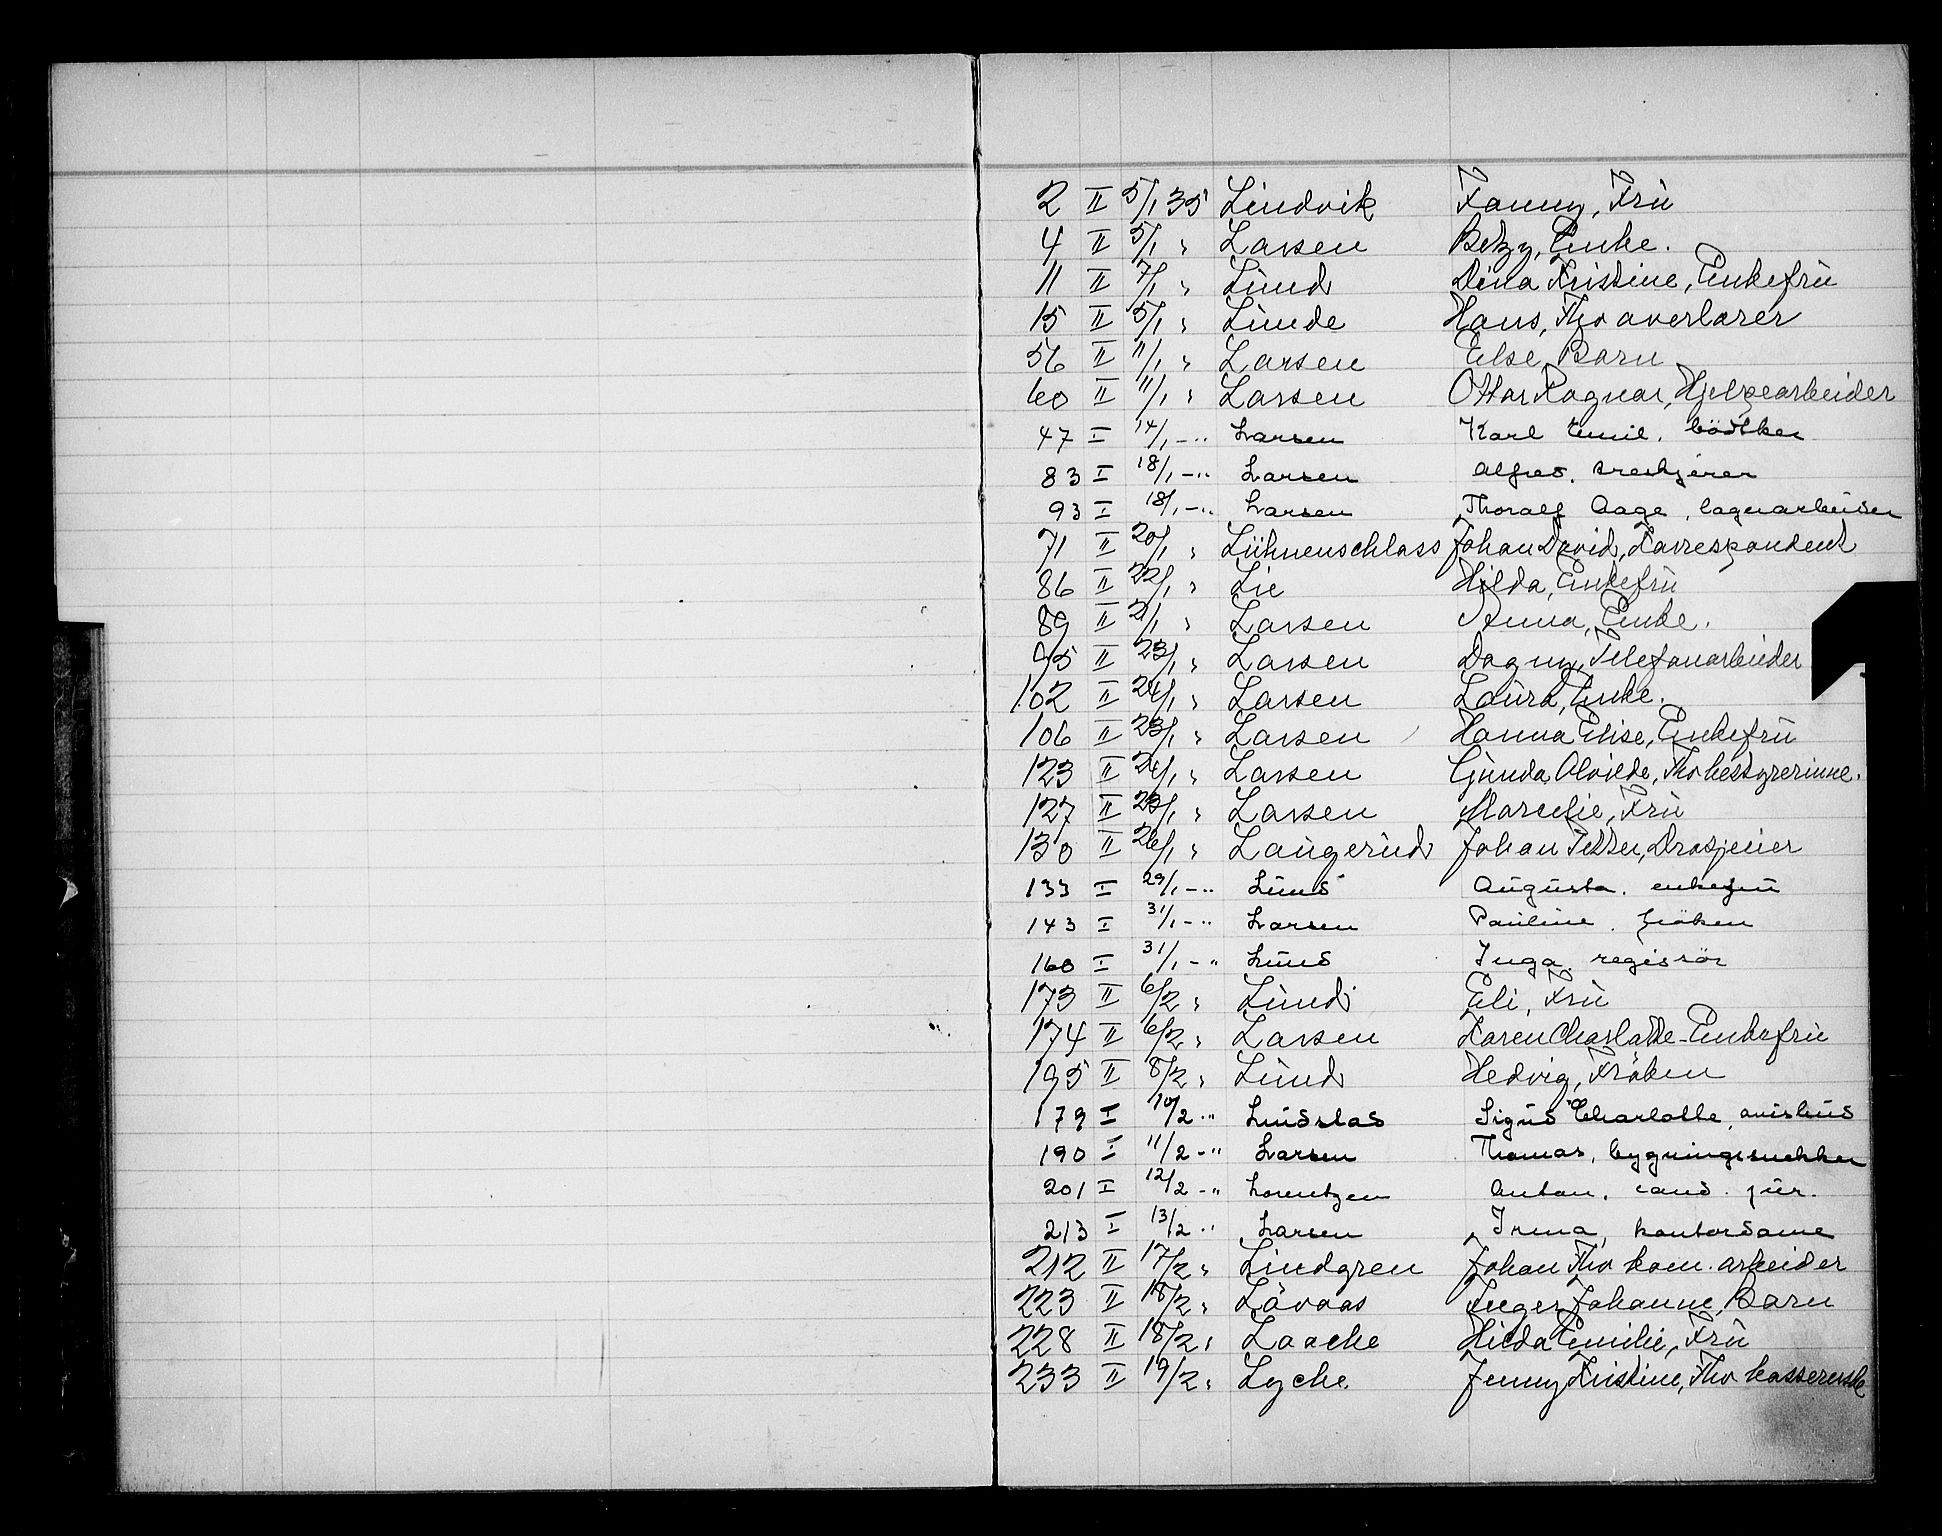 2 II 5/1 35 Lindvik Fanny, Frü
4 II 5/1 " Larsen Betzy, Enke.
11 II 7/1 " Lünd Dina Kristine, Enkefrü
15 II 5/1 " Lünde Hans, Fhv overlærer
56 II 11/1 " Larsen Else, Barn
60 II 11/1 " Larsen Ottar Ragnar, Hjelpearbeider
47 I 14/1 -" Larsen Karl Emil. bödtker
83 I 18/1 -" Larsen Alfred. treskjerer
93 I 18/1 -" Larsen Thoralf Aage, lagerarbeider
71 II 20/1 " Lühnenschlass Johan David, Korrespondent
86 II 22/1 " Lie Hilda, Enkefrü
89 II 21/1 " Larsen Anna, Enke.
95 II 23/1 " Larsen Dagny, Telefonarbeider
102 II 24/1 " Larsen Laura, Enke.
106 II 23/1 " Larsen Hanna Elise, Enkefrü
123 II 24/1 " Larsen Günda Alvilde, Fhv bestyrerinne.
127 II 23/1 " Larsen Marelie, Frü
130 II 26/1 " Laugerüd Johan Petter, Drosjeeier
133 I 29/1 -" Lünd Augüsta. enkefrü
143 I 31/1 -" Larsen Pauline. fröken
160 I 31/1 -" Lünd Inga. regissör
173 II 6/2 " Lünd Eli, Frü
174 II 6/2 " Larsen Karen Charlotte - Enkefrü
195 II 8/2 " Lünd Hedvig, Fröken
179 I 10/2 -" Lindstad Sigüd Charlotte, avisbüd
190 I 11/2 -" Larsen Thomas, bygningssnekker
201 I 12/2 -" Lorentzen Anton. cand. jür.
213 I 13/2 -" Larsen Irma, kontordame
212 II 17/2 " Lindgren Johan Fhv kom. arbeider
223 II 18/2 " Lövaas Inger Johanne, Barn
228 II 18/2 " Laache Hilda Emilie, Frü
233 II 19/2 " Lyche Jenny Kristine, Fhv kassererske